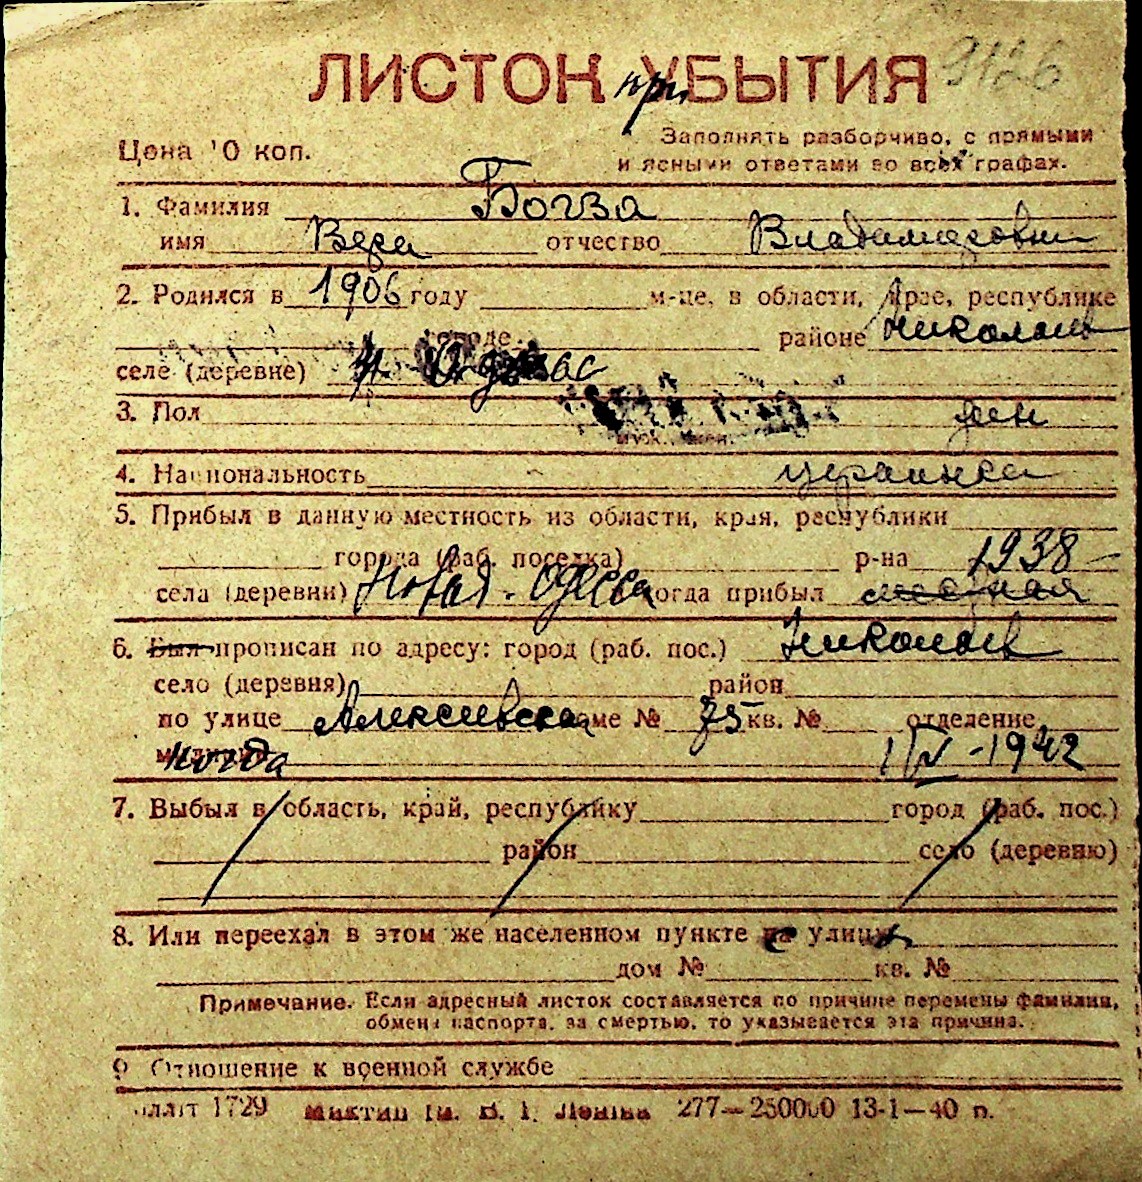 ЛИСТОК при УБЫТИЯ 9126
Цена 10 коп. Заполнять разборчиво, с прямыми
и ясными ответами во всех графах.
1. Фамилия Богза
имя Вера отчество Владимировн
2. Родился в 1906 году м-це, в области, крае, республике
городе районе Николаев
селе (деревне)
3. Пол жен
муж. жен.
4. Национальность украинка
5. Прибыл в данную местность из области, края, республики
города (раб. поселка) р-на 1938
села (деревни) Новая-Одесса когда прибыл местная
6. Был прописан по адресу: город (раб. пос.) Николаев
село (деревня) район
по улице Алексеевска доме № 75 кв. № отделение
милиции когда 1/IV-1942
7. Выбыл в область, край, республику город (раб. пос.)
район село (деревню)
8. Или переехал в этом же населенном пункте с улицы
дом № кв. №
Примечание. Если адресный листок составляется по причине перемены фамилии,
обмена паспорта, за смертью, то указывается эта причина.
9 Отношение к военной службе
1729 им. В. И. Ленина 277—250000 13-1—40 п.